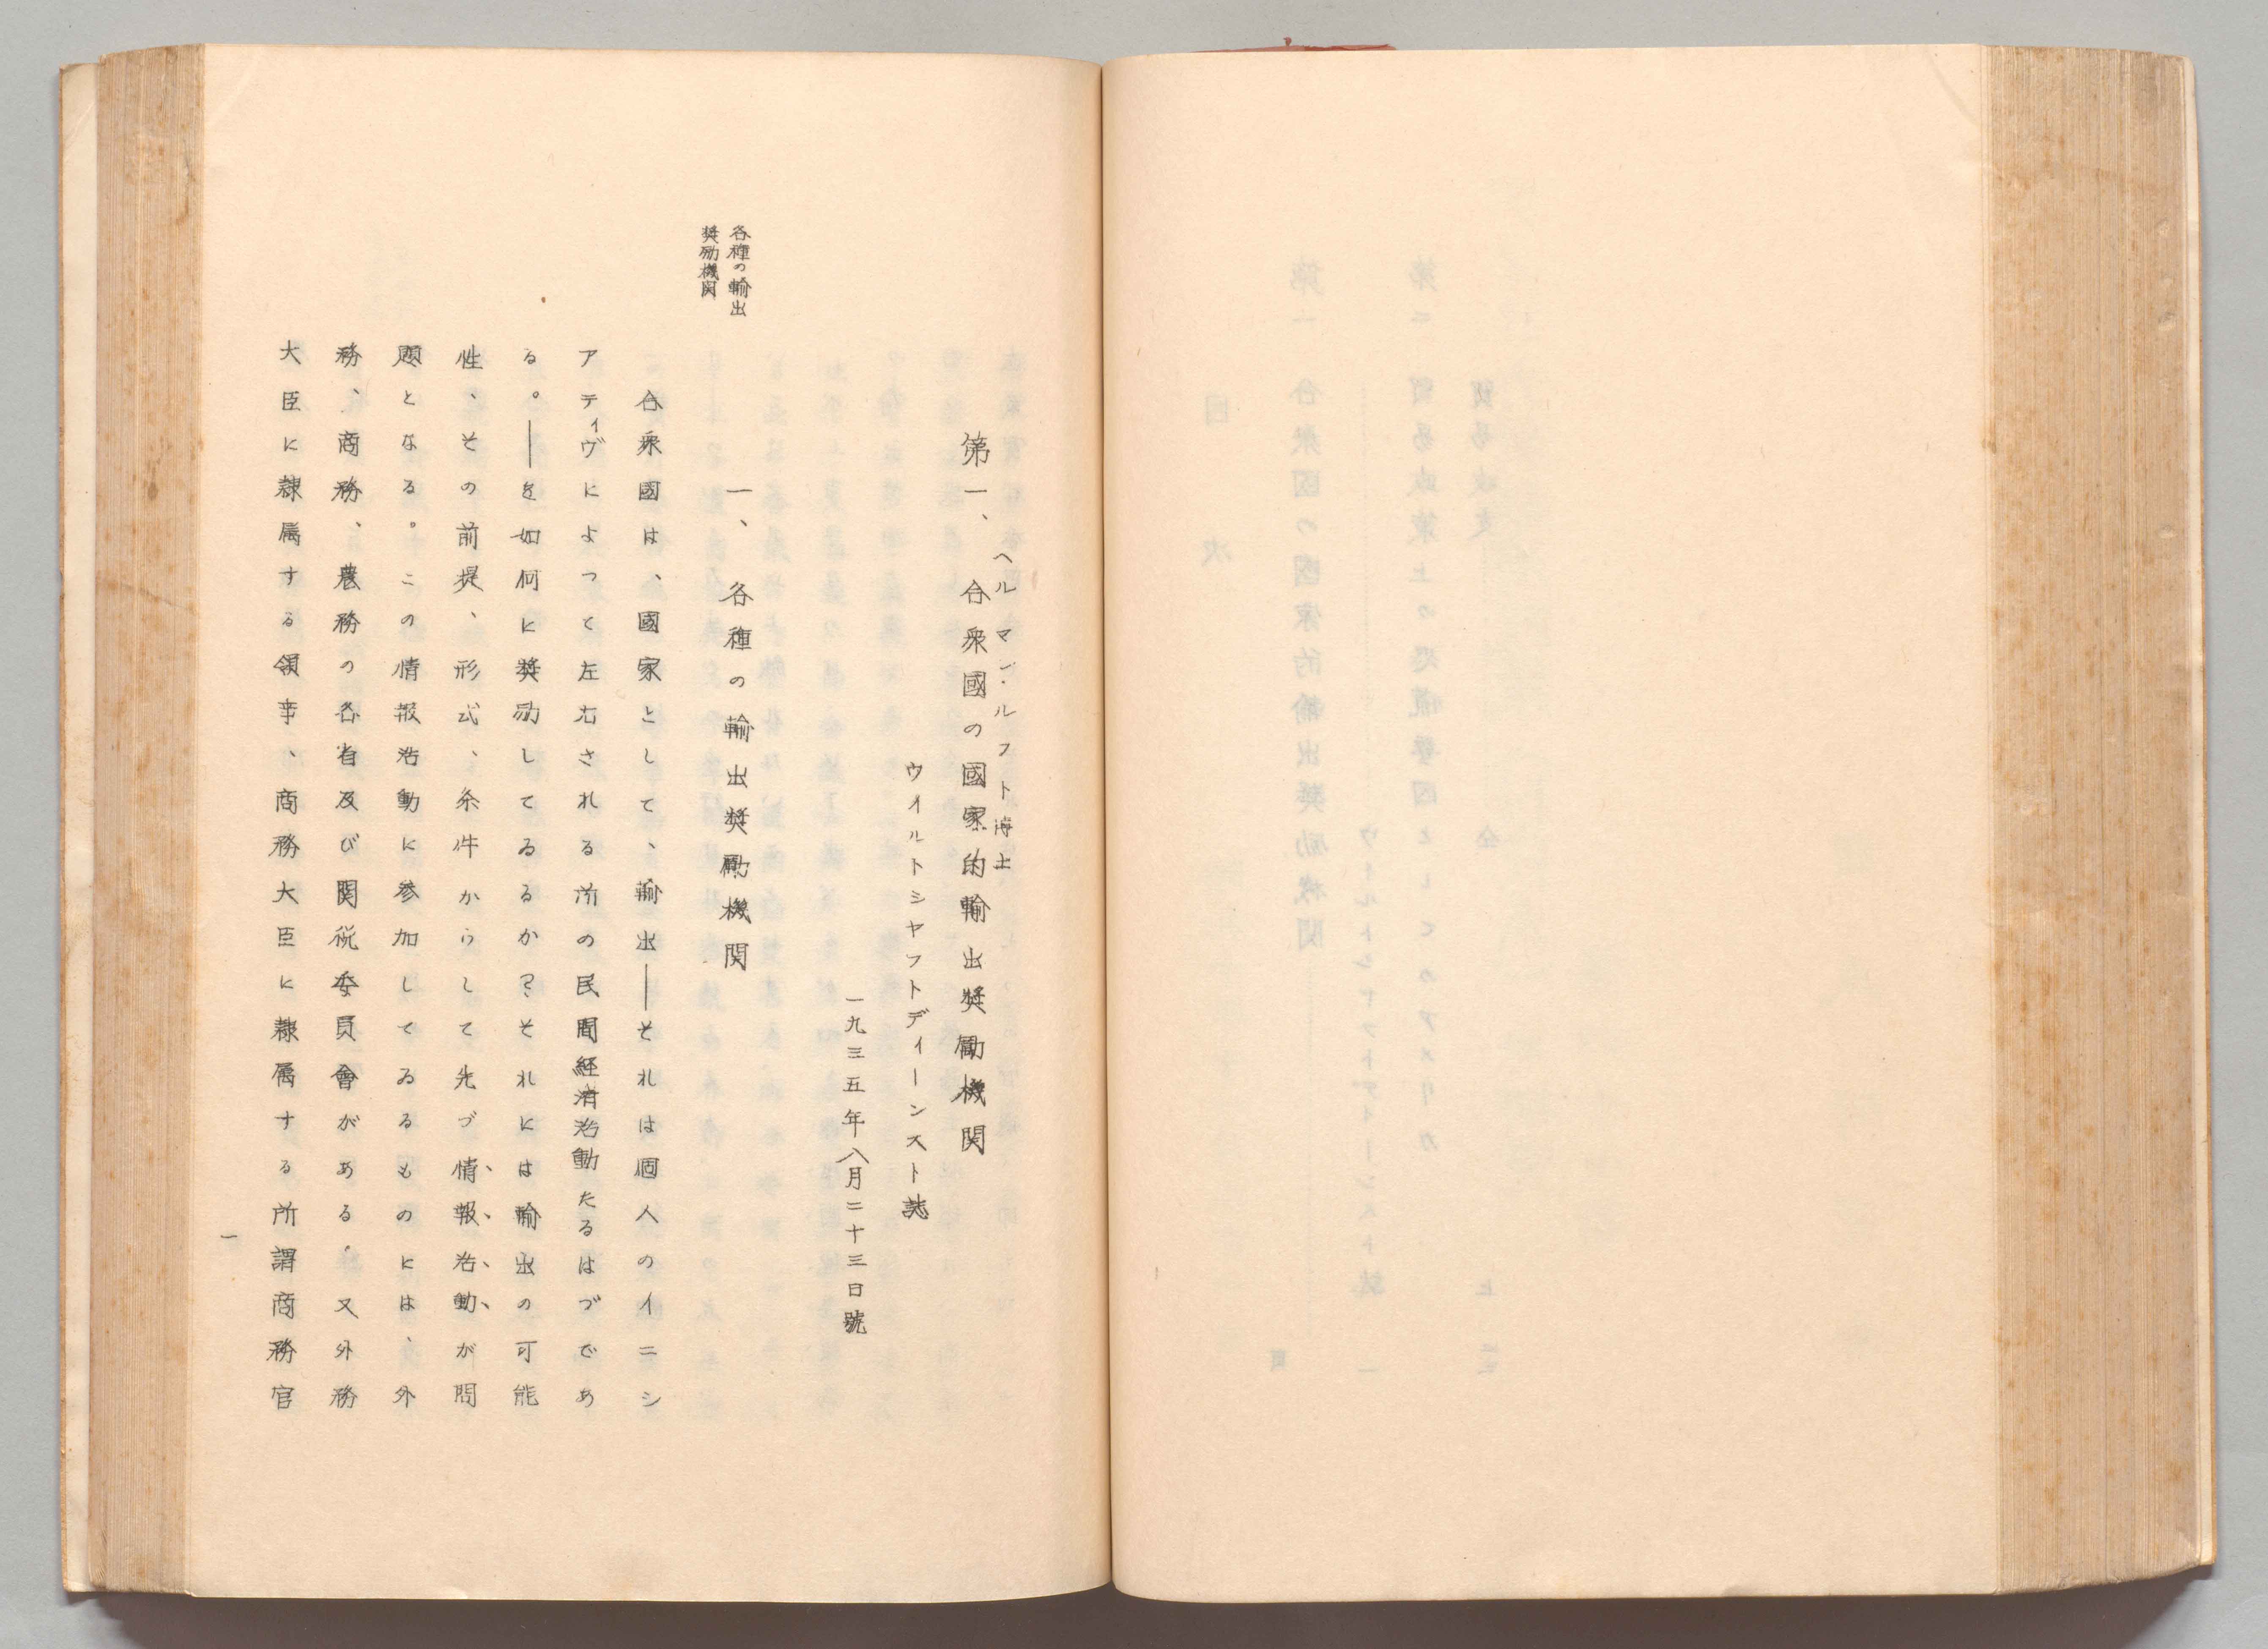 ヘルマン・ルフト博士
第一、合衆國の國家的輸出奨勵機関
ウイルトシヤフトディーンスト誌
一九三五年八月二十三日號
各種の輸出
奨励機関
一、各種の輸出奨勵機関
合衆國は、國家として、輸出――それは個人のイニシ
アティヴによつて左右される所の民間経済活動たるはづであ
る。――を如何に奨励してゐるか?それには輸出の可能
性、その前提、形式、条件からして先づ情報活動が問
題となる。この情報活動に参加してゐるものには、外
務、商務、農務の各省及び関税委員會がある。又外務
大臣に隷属する領事、商務大臣に隷属する所謂商務官
一